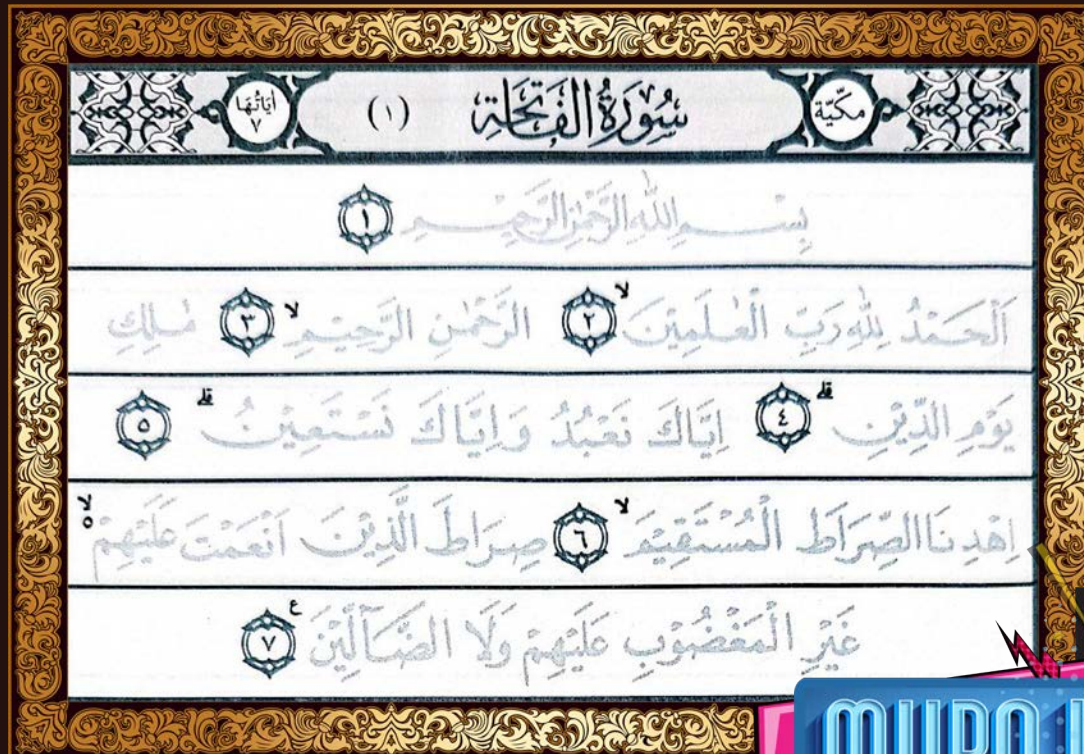 مكيّة سُورَةُ الفَاتِحَةِ (١) اٰيَاتُهَا ٧
بِسْــــمِ اللّٰهِ الرَّحْمٰنِ الرَّحِيْــــمِ ١
اَلْحَمْدُ لِلّٰهِ رَبِّ الْعٰلَمِيْنَ ۙ ٢ الرَّحْمٰنِ الرَّحِيْمِ ۙ ٣ مٰلِكِ
يَوْمِ الدِّيْنِ ۗ ٤ اِيَّاكَ نَعْبُدُ وَاِيَّاكَ نَسْتَعِيْنُ ۗ ٥
اِهْدِنَا الصِّرَاطَ الْمُسْتَقِيْمَ ۙ ٦ صِرَاطَ الَّذِيْنَ اَنْعَمْتَ عَلَيْهِمْ ەۙ
غَيْرِ الْمَغْضُوْبِ عَلَيْهِمْ وَلَا الضَّاۤلِّيْنَ ࣖ ٧